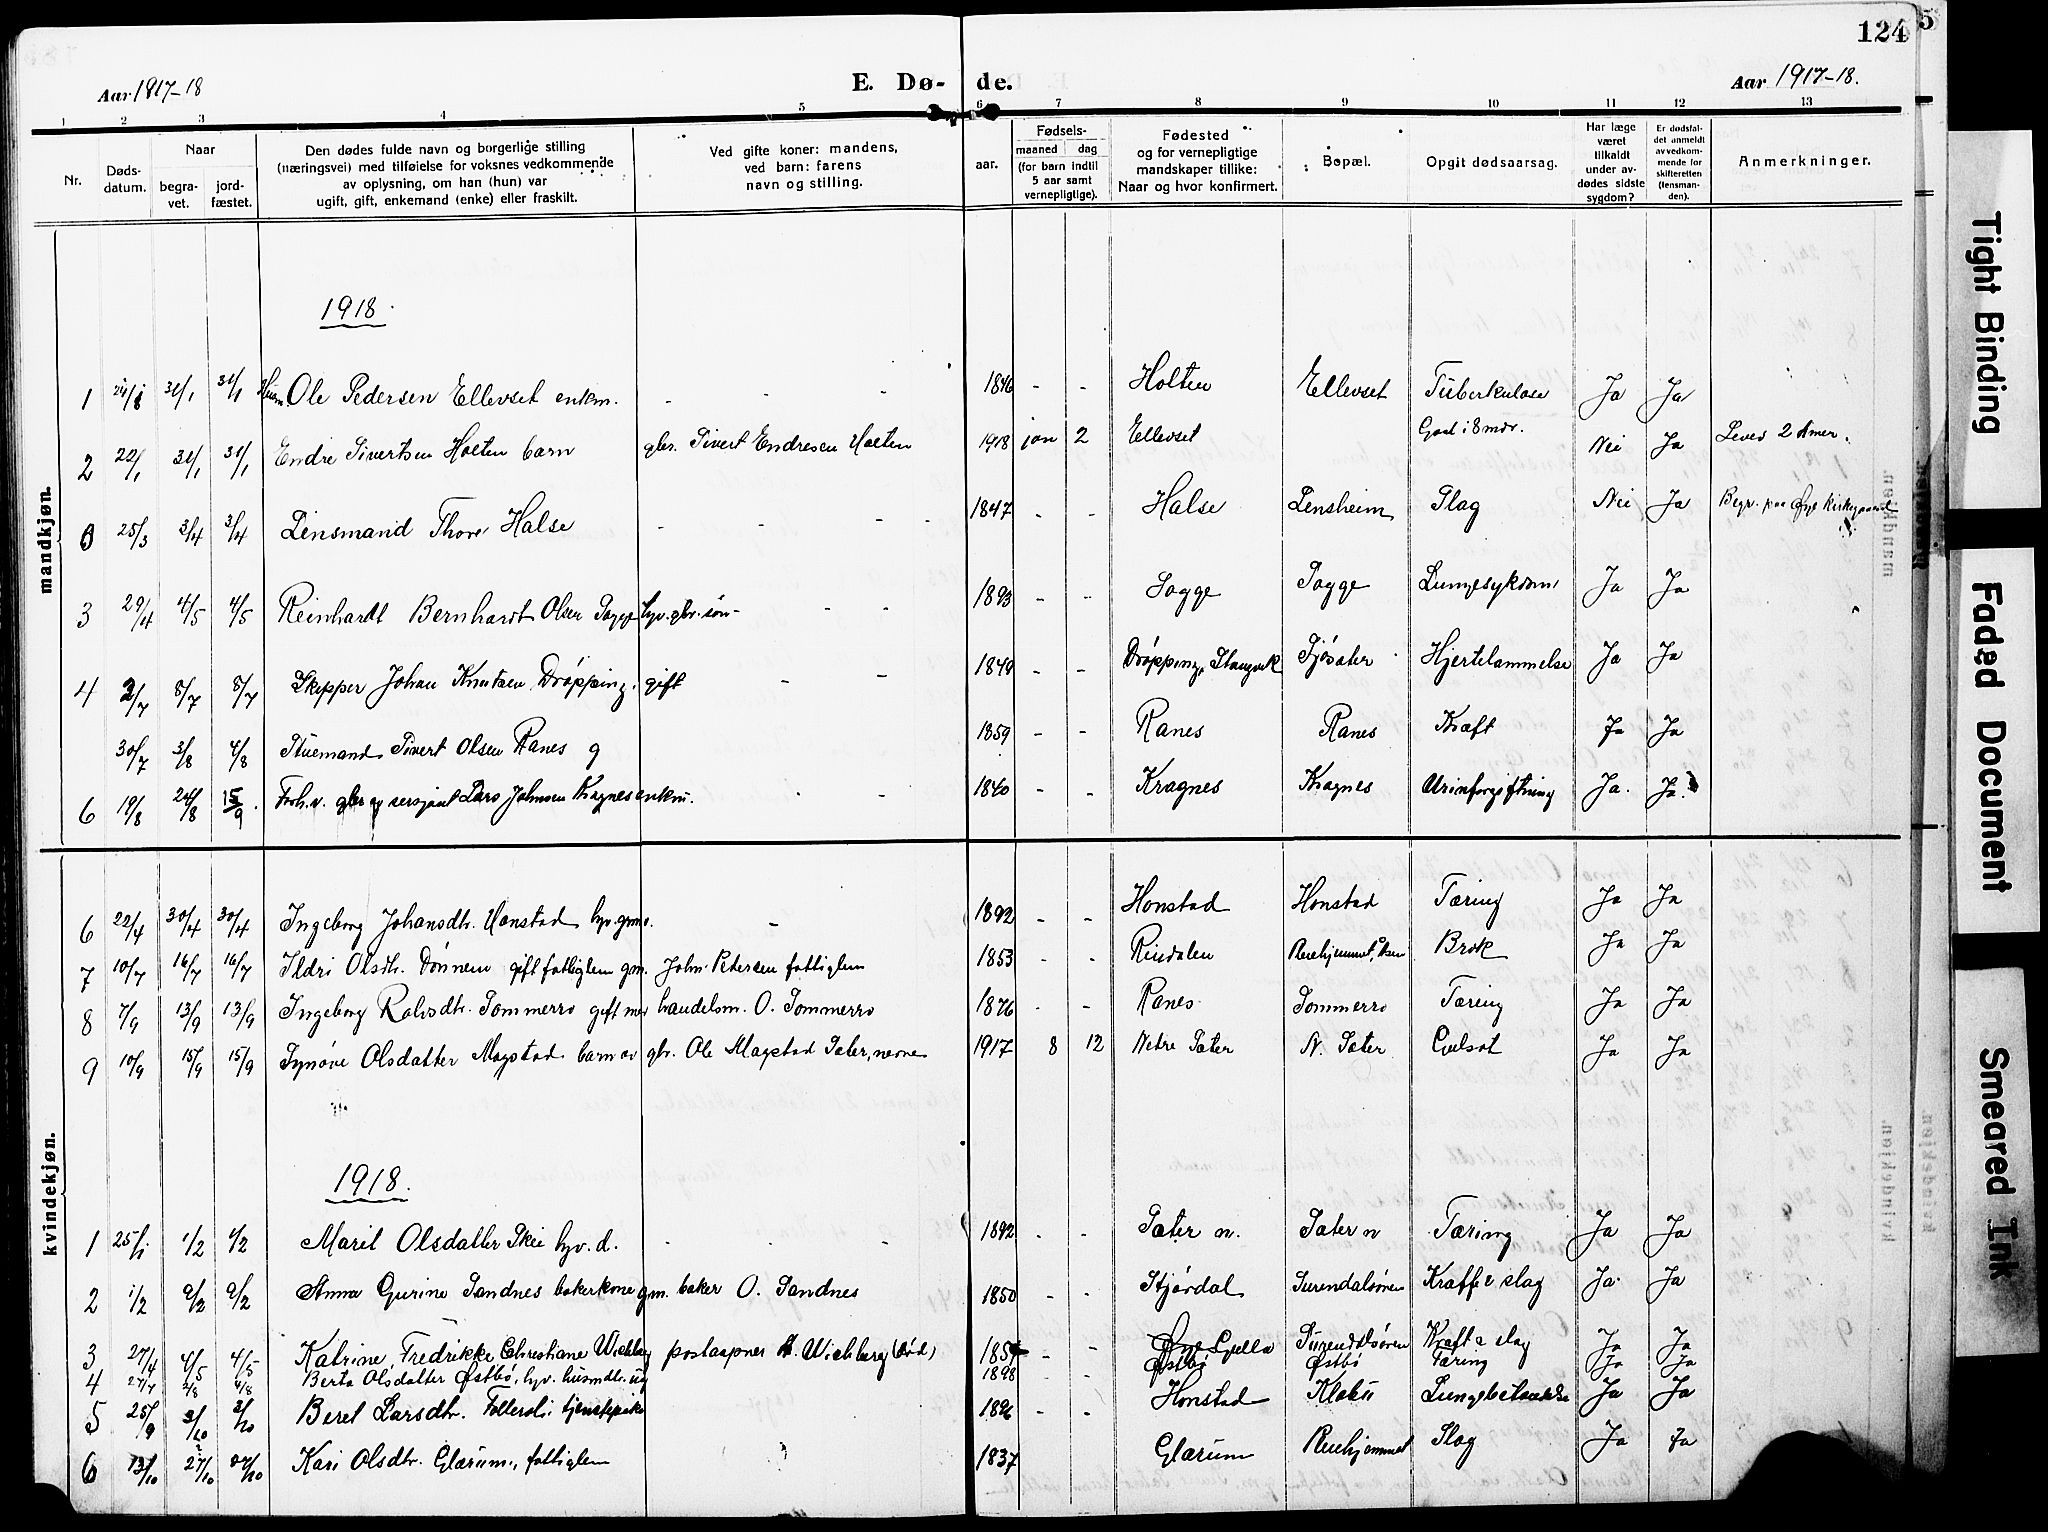 124
5
Aar 1917-18
E. Dø- de.
Aar 1917-18.
1 2 3 4 5 6 7 8 9 10 11 12 13
Nr.
Døds-
datum.
Naar
begra-
vet.
jord-
fæstet.
Den dødes fulde navn og borgerlige stilling
(næringsvei) med tilføielse for voksnes vedkommende
av oplysning, om han (hun) var
ugift, gift, enkemand (enke) eller fraskilt.
Ved gifte koner: mandens,
ved barn: farens
navn og stilling.
aar.
Fødsels-
maaned dag
(for barn indtil
5 aar samt
vernepligtige).
Fødested
og for vernepligtige
mandskaper tillike:
Naar og hvor konfirmert.
Bopæl.
Opgit dødsaarsag.
Har læge
været
tilkaldt
under av-
dødes sidste
sygdom?
Er dødsfal-
det anmeldt
av vedkom-
mende for
skifteretten
(lensman-
den).
Anmerkninger.
mandkjøn.
1918.
1 31/1 31/1 Ole Pedersen Ellevset enkm. - - 1846 - - Holten Ellevset Tuberkulose Ja Ja
2 22/1 31/1 31/1 Endre Sivertsen Holten barn gbr. Sivert Endresen Holten 1918 jan 2 Ellevset Nei Ja Leved 2 timer.
25/3 3/4 3/4 Lensmand Thore Halse - - 1847 - - Halse Lensheim Slag Nei Ja Begr. paa Øye kirkegaard
3 29/4 4/5 4/5 Reinhardt Bernhardt Olsen Sogge hjv. gbr. søn - - - 1893 - - Sogge Sogge Lungesykdom Ja Ja
4 2/7 8/7 8/7 Skipper Johan Knutsen Drøpping. gift - - 1849 - - Drøpping, Stangvik Sjøsæter Hjertelammelse Ja Ja
30/7 3/8 4/8 Stuemand Sivert Olsen Ranes g 1859 - - Ranes Ranes Kræft Ja Ja
6 19/8 24/8 15/9. Forh.v. gbr og sersjant Lars Johnsen Kragnes enkm. - - 1840 - - Kragnes Kragnes Urinforgiftning Ja. Ja.
kvindekjøn.
6 22/4 30/4 30/4 Ingeborg Johansdtr. Honstad hjv. gmd. - 1892 - - Honstad Honstad Tæring Ja Ja
7 10/7 16/7 16/7 Ildri Olsdtr. Dønnem gift fattiglem gm. John Petersen fattiglem 1853 - - Rindalen Pleiehjemmet, Åsen Brok Ja Ja
8 7/9 13/9 13/9 Ingeborg Rolvsdtr. Sommerro gift med handelsm. O. Sommerro 1876 - - Ranes Sommerro Tæring Ja Ja
9 10/9 15/9 15/9 Synøve Olsdatter Mogstad barn av gbr. Ole Mogstad Sæter, nedre 1917 8 12 Nedre Sæter N. Sæter Gulsot Ja Ja
1918.
1 25/1 1/2 1/2 Marit Olsdatter Skei hjv. d. - - 1892 - - Sæter n. Sæter n Tæring Ja Ja
2 1/2 9/2 9/2 Anna Gurine Sandnes bakerkone gm. baker O. Sandnes 1850 - - Stjørdal Surendalsøren Kræft & slag Ja. Ja
3 27/4 4/5 4/5 Katrine Fredrikke Christiane Wichberg postaapner A. Wichberg (død) - - Øye Gulla Surendalsøren Kræft & slag Ja Ja
4 27/7 2/8 4/8 Berta Olsdatter Østbø, hjv. husmdtr. ug 1898 - - Østbø Østbø Tæring Ja Ja
5 25/9 3/10 3/10 Beret Larsdtr. Tellesli tjenstpike 1896 - - Honstad Klæbu Lungebetændelse Ja Ja
6 13/10 27/10 27/10 Kari Olsdtr. Glærum, fattiglem 1837 Glærum Pleiehjemmet Slag Ja Ja
Tight Binding
Faded Document
Smeared Ink